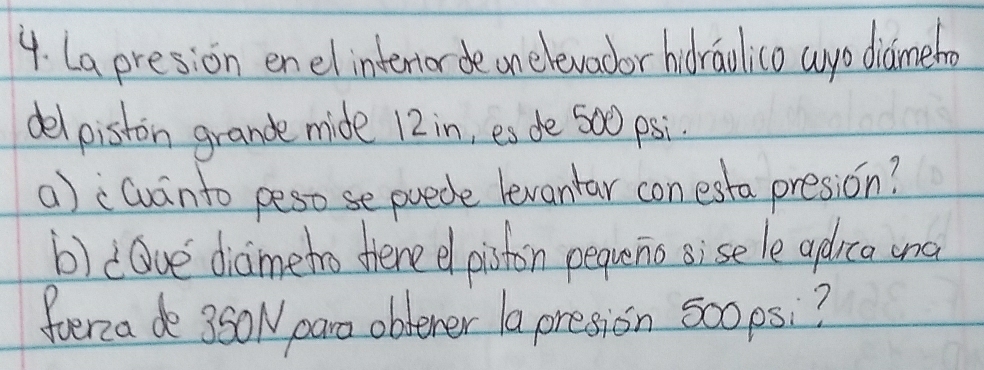 4. La presión en el interior de un elevador hidráulico cuyo diámetro
del pistón grande mide 12 in, es de 500 psi.
a) ¿Cuánto peso se puede levantar con esta presión?
b) ¿Qué diámetro tiene el pistón pequeño si se le aplica una
fuerza de 350N para obtener la presión 500 psi?